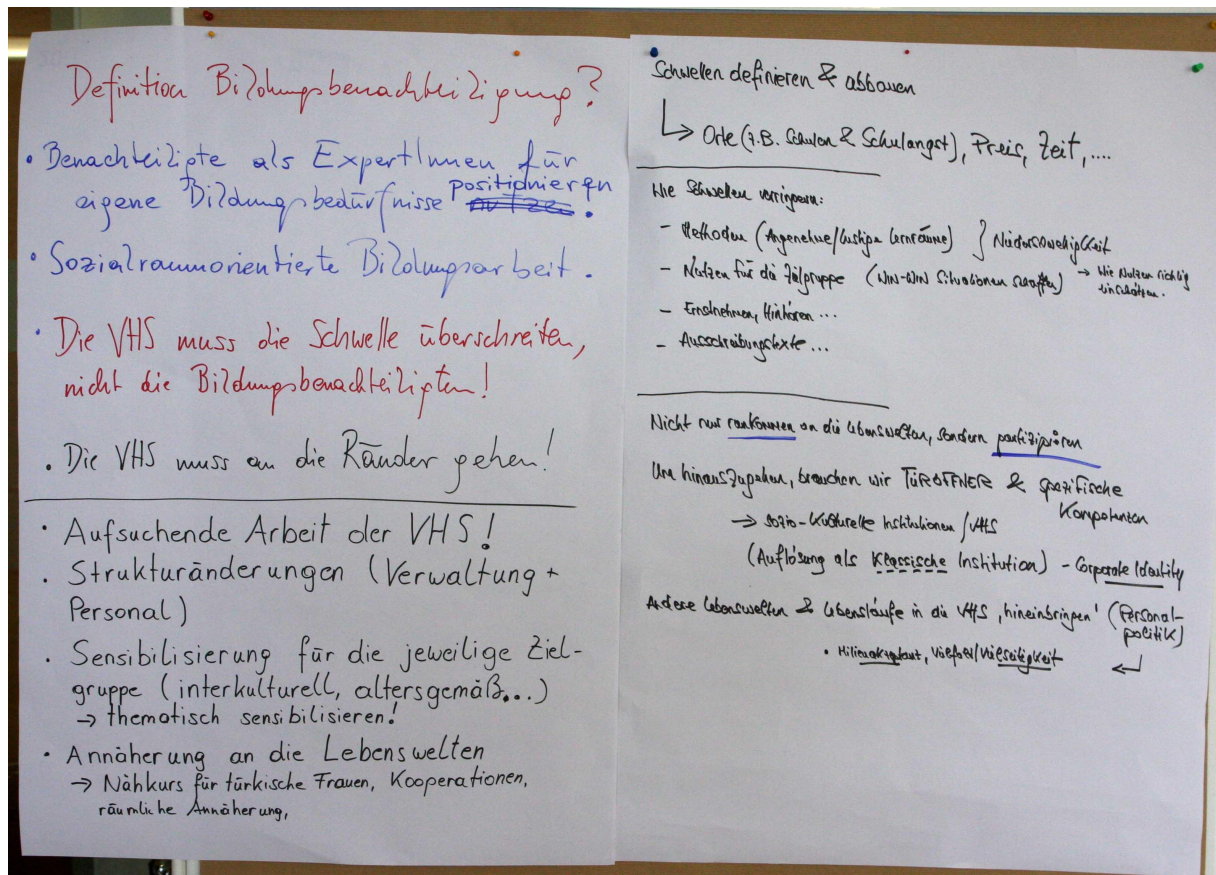 Definition Bildungsbenachteiligung?
• Benachteiligte als ExpertInnen für
eigene Bildungsbedürfnisse positionieren.
• Sozialraumorientierte Bildungsarbeit.
• Die VHS muss die Schwelle überschreiten,
nicht die Bildungsbenachteiligten!
• Die VHS muss an die Ränder gehen!
• Aufsuchende Arbeit der VHS!
• Strukturänderungen (Verwaltung +
Personal)
• Sensibilisierung für die jeweilige Ziel-
gruppe (interkulturell, altersgemäß...)
→ thematisch sensibilisieren!
• Annäherung an die Lebenswelten
→ Nähkurs für türkische Frauen, Kooperationen,
räumliche Annäherung,
Schwellen definieren & abbauen
↳ Orte (z.B. Schulen & Schulangst), Preis, Zeit, ....
Wie Schwellen verringern:
- Methoden (Angenehme/lustige Lernräume) } Niederschwelligkeit
- Nutzen für die Zielgruppe (WIN-WIN Situationen schaffen) → Wie Nutzen richtig
einschätzen.
- Ernstnehmen, Hinhören ...
- Ausschreibungstexte ...
Nicht nur rankommen an die Lebenswelten, sondern partizipieren
Um hinauszugehen, brauchen wir TÜRÖFFNER & spezifische
Kompetenzen
→ Sozio-Kulturelle Institutionen / VHS
(Auflösung als Klassische Institution) - Corporate Identity
Andere Lebenswelten & Lebensläufe in die VHS ‚hineinbringen' (Personal-
politik)
• Vielfalt/Vielseitigkeit